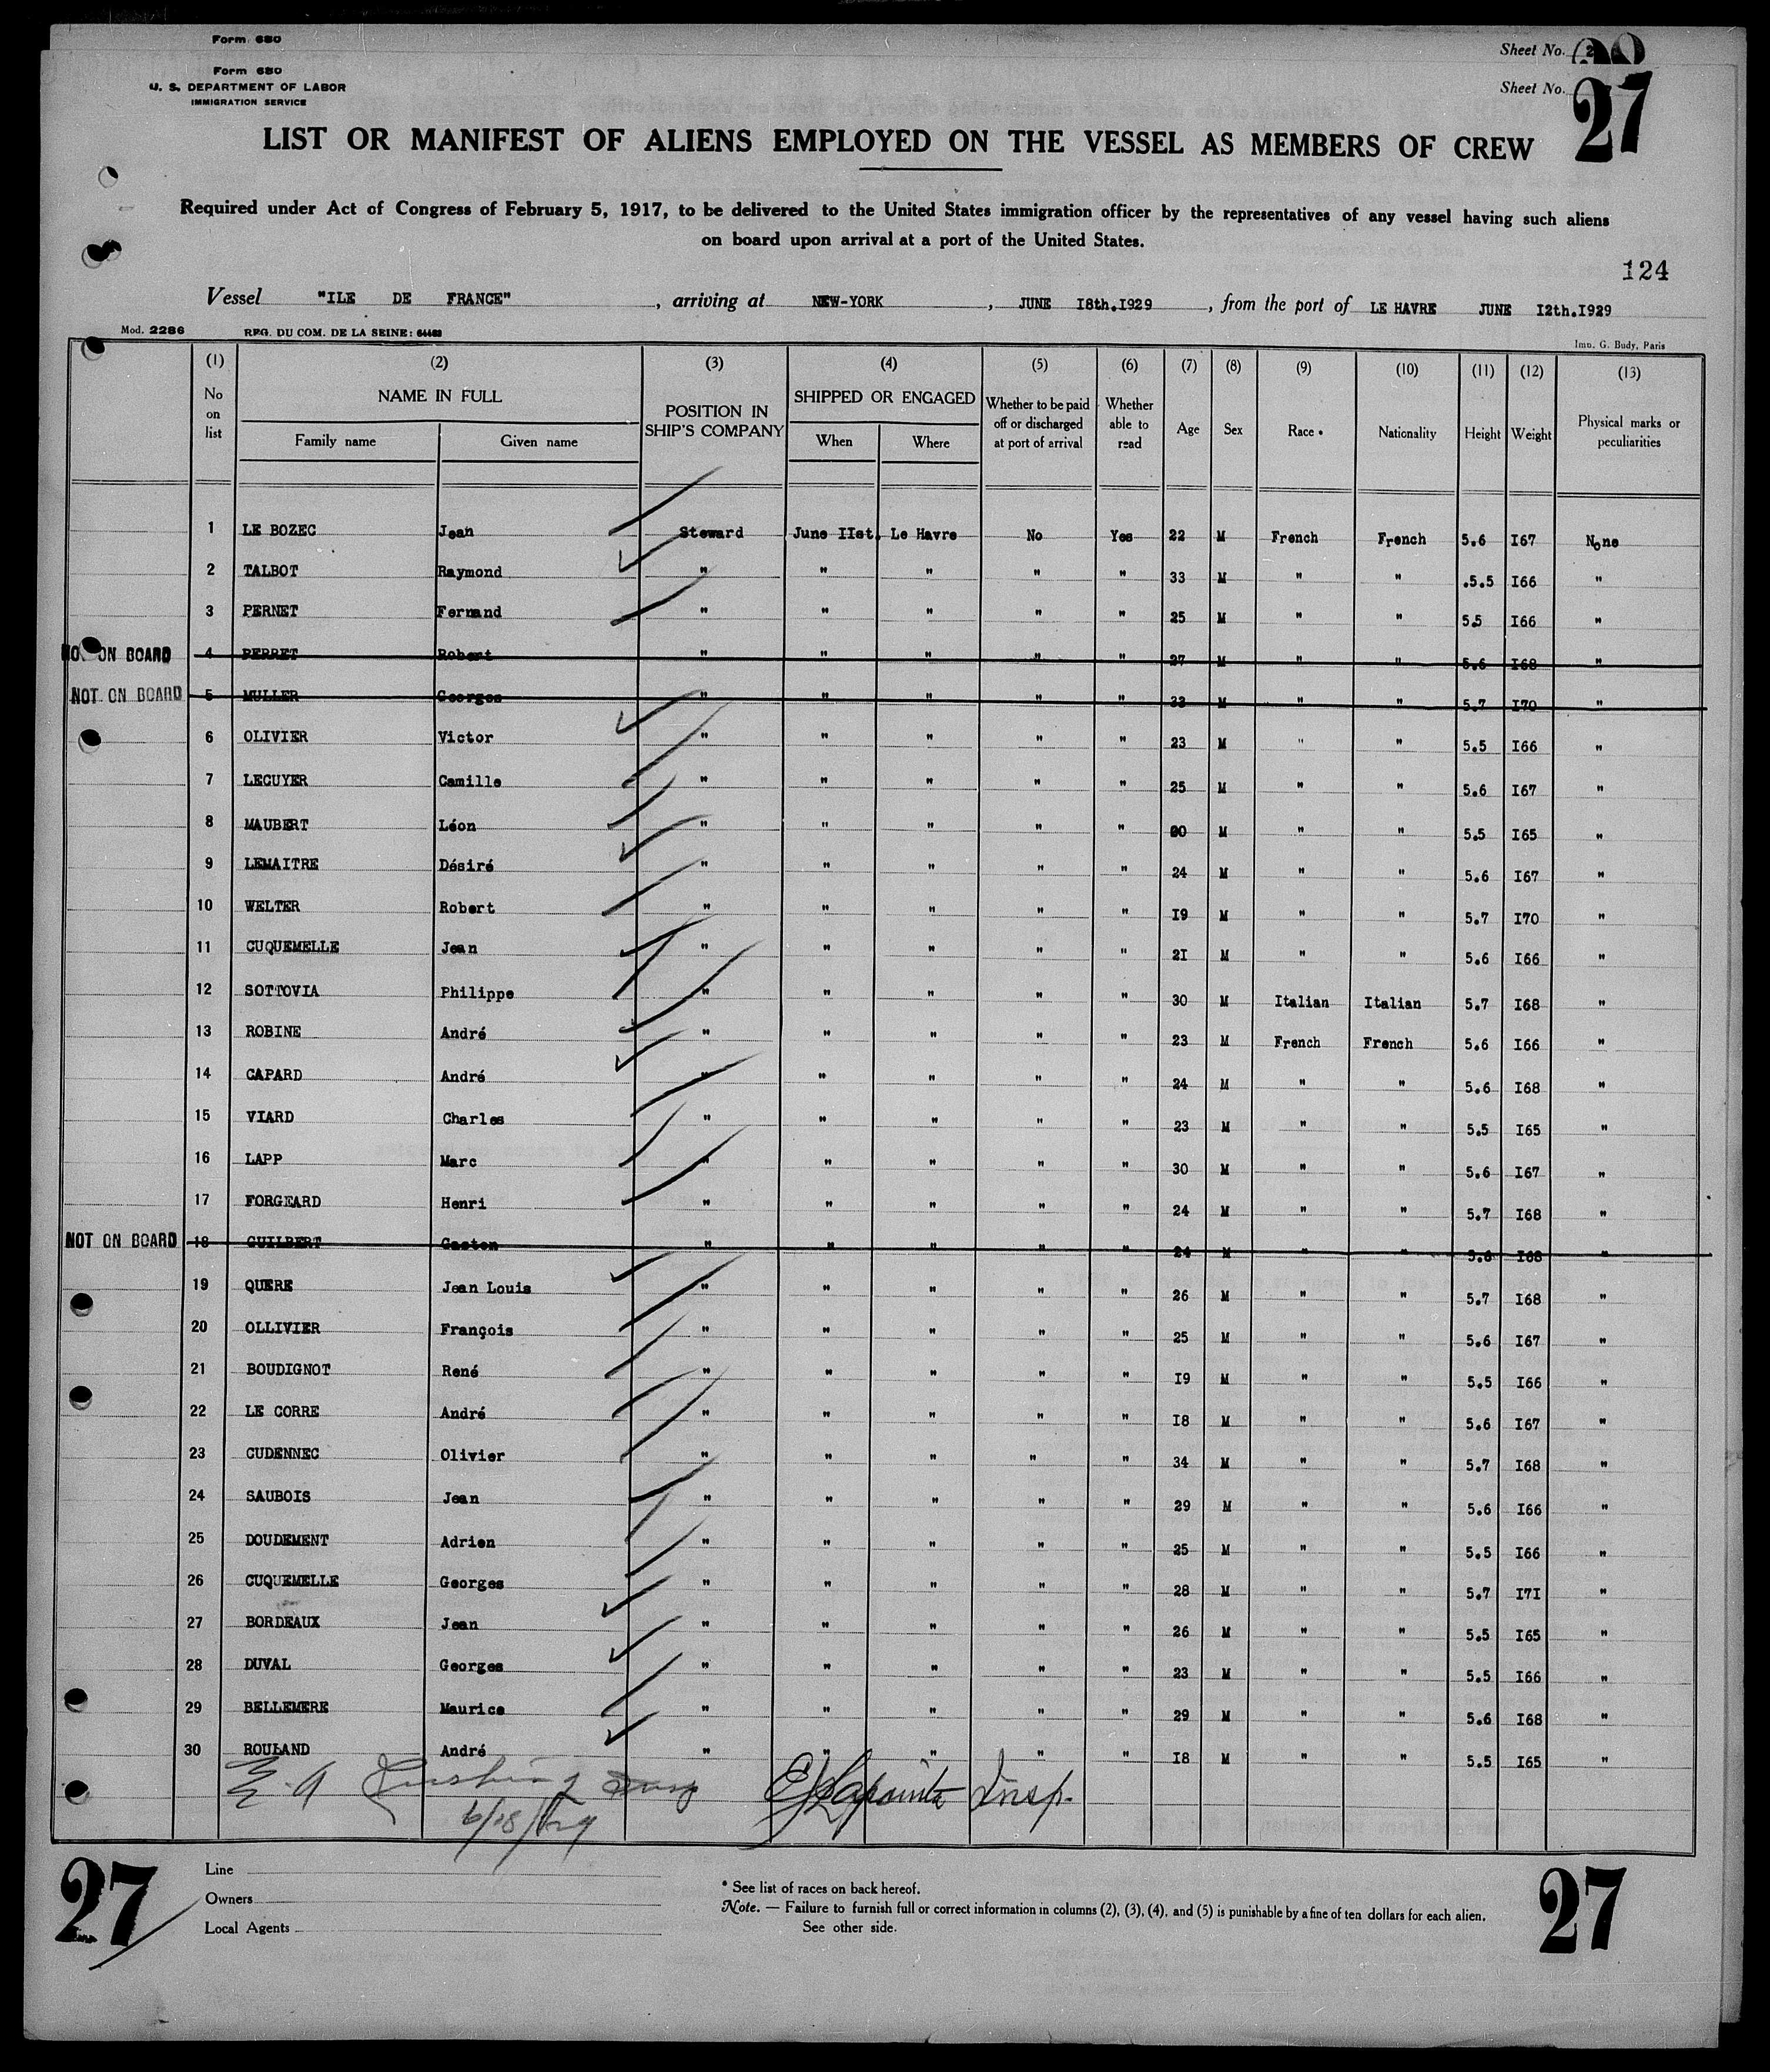 Form 680
Sheet No.
Form 680
U. S. DEPARTMENT OF LABOR
IMMIGRATION SERVICE
Sheet No. 27
LIST OR MANIFEST OF ALIENS EMPLOYED ON THE VESSEL AS MEMBERS OF CREW
Required under Act of Congress of February 5, 1917, to be delivered to the United States immigration officer by the representatives of any vessel having such aliens
on board upon arrival at a port of the United States.
124
Vessel "ILE DE FRANCE", arriving at NEW-YORK, JUNE I8th.I929, from the port of LE HAVRE JUNE I2th.I929
Mod. 2286 REG. DU COM. DE LA SEINE: Imp. G. Budy, Paris
(1) (2) (3) (4) (5) (6) (7) (8) (9) (10) (11) (12) (13)
No on list NAME IN FULL Family name Given name POSITION IN SHIP'S COMPANY SHIPPED OR ENGAGED When Where Whether to be paid off or discharged at port of arrival Whether able to read Age Sex Race * Nationality Height Weight Physical marks or peculiarities
1 LE BOZEC Jean Steward June IIst. Le Havre No Yes 22 M French French 5.6 I67 None
2 TALBOT Raymond " " " " " 33 M " " .5.5 I66 "
3 PERNET Fernand " " " " " 25 M " " 55 I66 "
NOT ON BOARD 4 PERRET Robert " " " " " 27 M " " 5.6 I68 "
NOT ON BOARD 5 MULLER Georges " " " " " 33 M " " 5.7 I70 "
6 OLIVIER Victor " " " " " 23 M " " 5.5 I66 "
7 LECUYER Camille " " " " " 25 M " " 5.6 I67 "
8 MAUBERT Léon " " " " " M " " 5.5 I65 "
9 LEMAITRE Désiré " " " " " 24 M " " 5.6 I67 "
10 WELTER Robert " " " " " I9 M " " 5.7 I70 "
11 CUQUEMELLE Jean " " " " " 2I M " " 5.6 I66 "
12 SOTTOVIA Philippe " " " " " 30 M Italian Italian 5.7 I68 "
13 ROBINE André " " " " " 23 M French French 5.6 I66 "
14 CAPARD André " " " " " 24 M " " 5.6 I68 "
15 VIARD Charles " " " " " 23 M " " 5.5 I65 "
16 LAPP Marc " " " " " 30 M " " 5.6 I67 "
17 FORGEARD Henri " " " " " 24 M " " 5.7 I68 "
NOT ON BOARD 18 GUILBERT Gaston " " " " " 24 M " " 5.6 I68 "
19 QUERE Jean Louis " " " " " 26 M " " 5.7 I68 "
20 OLLIVIER François " " " " " 25 M " " 5.6 I67 "
21 BOUDIGNOT René " " " " " I9 M " " 5.5 I66 "
22 LE CORRE André " " " " " I8 M " " 5.6 I67 "
23 CUDENNEC Olivier " " " " " 34 M " " 5.7 I68 "
24 SAUBOIS Jean " " " " " 29 M " " 5.6 I66 "
25 DOUDEMENT Adrien " " " " " 25 M " " 5.5 I66 "
26 CUQUEMELLE Georges " " " " " 28 M " " 5.7 I7I "
27 BORDEAUX Jean " " " " " 26 M " " 5.5 I65 "
28 DUVAL Georges " " " " " 23 M " " 5.5 I66 "
29 BELLEMERE Maurice " " " " " 29 M " " 5.6 I68 "
30 ROULAND André " " " " " I8 M " " 5.5 I65 "
E. A Insp. 
EJ Lapointe Insp.
6/18/29
27
Line
Owners
Local Agents
* See list of races on back hereof.
Note. — Failure to furnish full or correct information in columns (2), (3), (4), and (5) is punishable by a fine of ten dollars for each alien.
See other side.
27